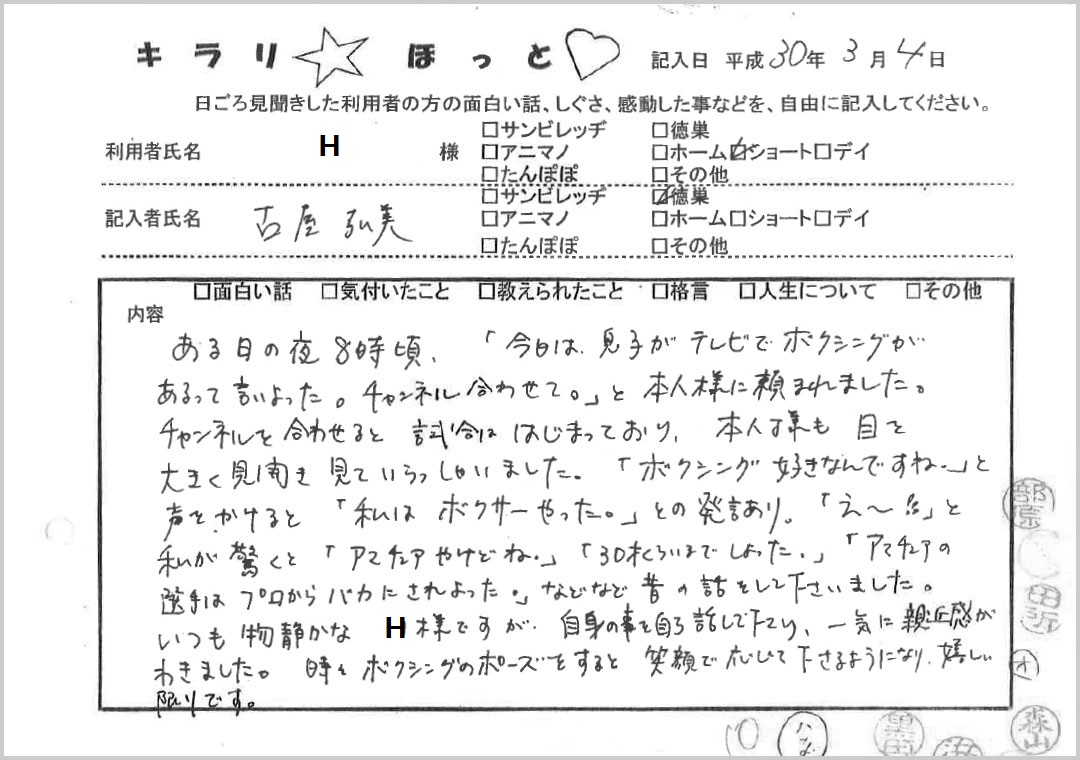 キラリ☆ほっと♡ 記入日 平成30年3月4日
日ごろ見聞きした利用者の方の面白い話、しぐさ、感動した事などを、自由に記入してください。
□サンビレッヂ □徳巣
利用者氏名 H 様 □アニマノ □ホーム☑ショート□デイ
□たんぽぽ □その他
□サンビレッヂ ☑徳巣
記入者氏名 古屋 弘美 □アニマノ □ホーム□ショート□デイ
□たんぽぽ □その他
□面白い話 □気付いたこと □教えられたこと □格言 □人生について □その他
内容
ある日の夜8時頃、「今日は、息子がテレビでボクシングが
あるって言いよった。チャンネル合わせて。」と本人様に頼まれました。
チャンネルを合わせると試合ははじまっており、本人様も目を
大きく見開き見ていらっしゃいました。「ボクシング好きなんですね。」と
声をかけると「私はボクサーやった。」との発言あり。「え〜!!」と
私が驚くと「アマチュアやけどね。」「30才くらいまでしよった。」「アマチュアの
選手はプロからバカにされよった。」などなど昔の話をして下さいました。
いつも物静かな H 様ですが、自身の事を自ら話して下さり、一気に親近感が
わきました。時々ボクシングのポーズをすると笑顔で応じて下さるようになり、嬉しい
限りです。
部原
田近
オ
森山
黒田